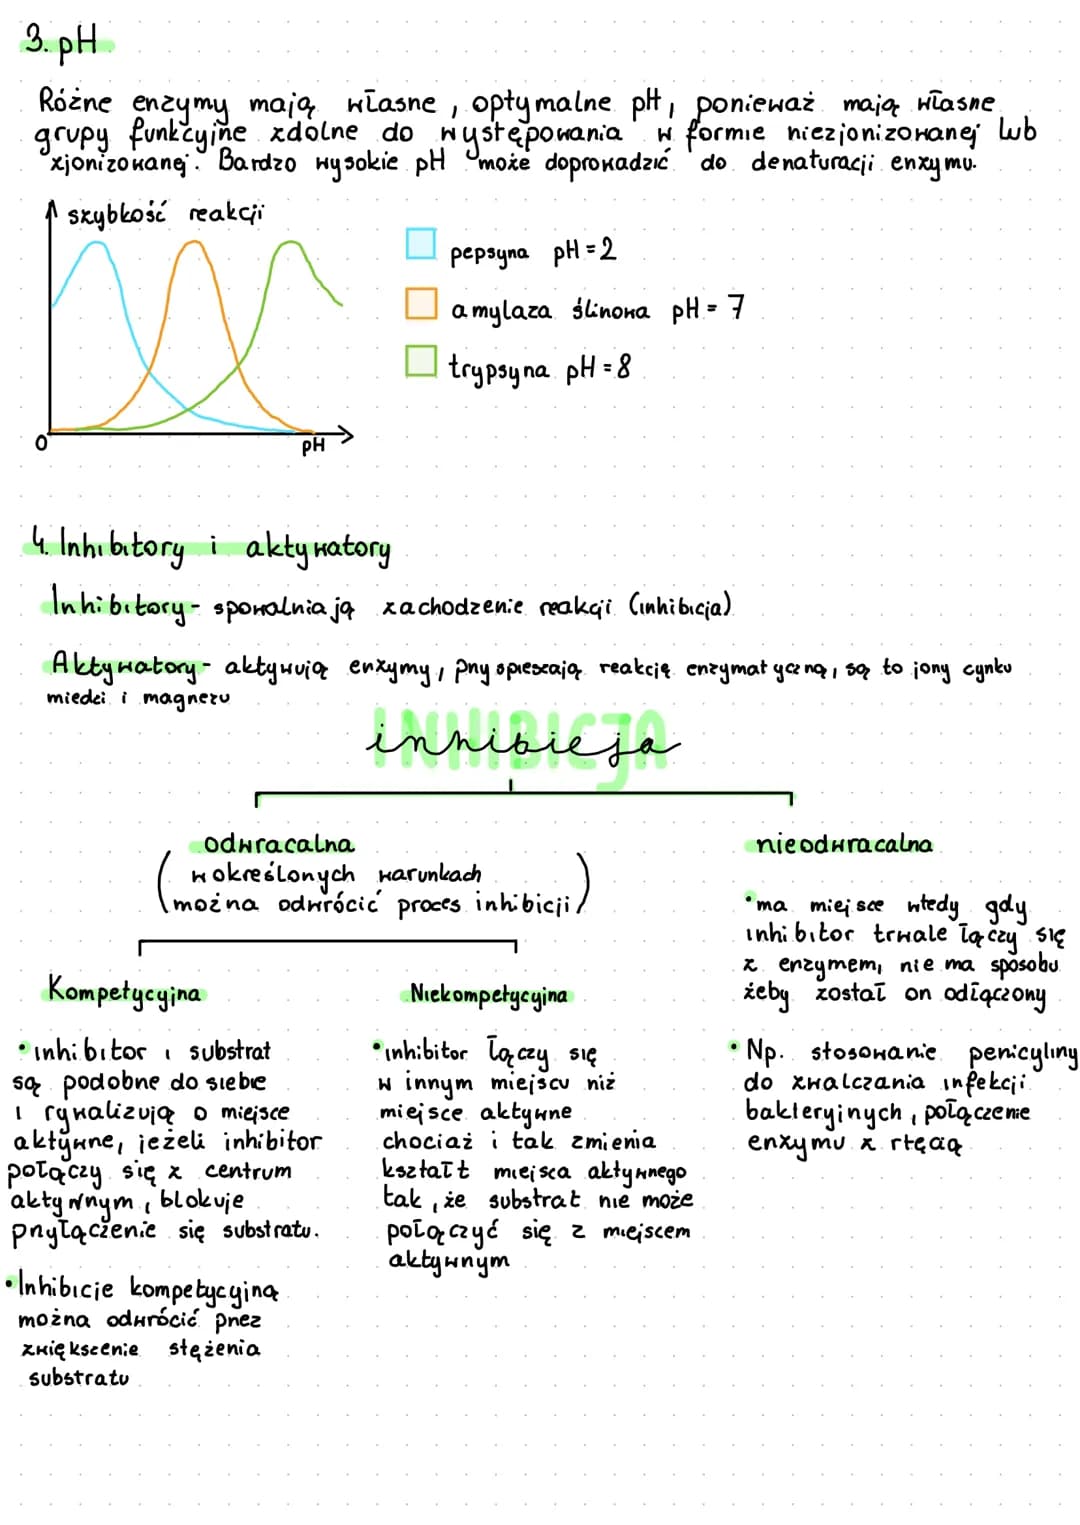 3. pH
Różne enzymy mają własne, optymalne pH, ponieważ mają własne
grupy funkcyjne zdolne do występowania w formie niezjonizowanej lub
zjonizowanej. Bardzo wysokie pH może doprowadzić do denaturacji enzymu.
szybkość reakcji
pepsyna pH = 2
amylaza ślinowa pH = 7
trypsyna pH = 8
0
pH
4. Inhibitory i aktywatory
Inhibitory - spowalniają zachodzenie reakcji (inhibicja)
Aktywatory - aktywują enzymy, przyspieszają reakcję enzymatyczną, są to jony cynku
miedzi i magnezu
INHIBICJA
inhibicja
odwracalna
(w określonych warunkach
można odwrócić proces inhibicji)
nieodwracalna
•ma miejsce wtedy gdy
inhibitor trwale łączy się
z enzymem, nie ma sposobu
żeby został on odłączony
• Np. stosowanie penicyliny
do zwalczania infekcji
bakteryjnych, połączenie
enzymu z rtęcią
Kompetycyjna
•inhibitor i substrat
są podobne do siebie
i rywalizują o miejsce
aktywne, jeżeli inhibitor
połączy się z centrum
aktywnym, blokuje
przyłączenie się substratu.
•Inhibicje kompetycyjną
można odwrócić przez
zwiększenie stężenia
substratu
Niekompetycyjna
•inhibitor łączy się
w innym miejscu niż
miejsce aktywne
chociaż i tak zmienia
kształt miejsca aktywnego
tak, że substrat nie może
połączyć się z miejscem
aktywnym